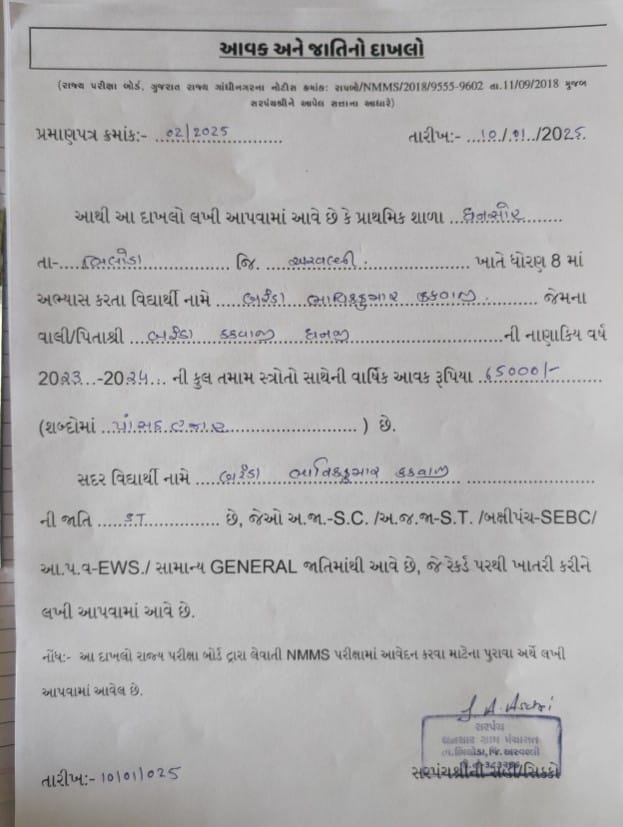 આવક અને જાતિનો દાખલો
(રાજ્ય પરીક્ષા બોર્ડ, ગુજરાત રાજ્ય ગાંધીનગરના નોટીસ ક્રમાંક: રાપબો/NMMS/2018/9555-9602 તા.11/09/2018 મુજબ
સરપંચશ્રીને આપેલ સત્તાના આધારે)
પ્રમાણપત્ર ક્રમાંક:- 02/2025 તારીખ:- 10/01/2025
આથી આ દાખલો લખી આપવામાં આવે છે કે પ્રાથમિક શાળા ધનસોર
તા- ભિલોડા જિ. અરવલ્લી ખાતે ધોરણ 8 માં
અભ્યાસ કરતા વિદ્યાર્થી નામે બરંડા ભાવિકકુમાર કકવાજી જેમના
વાલી/પિતાશ્રી બરંડા કકવાજી ધનજી ની નાણાકિય વર્ષ
2023-2024 ની કુલ તમામ સ્ત્રોતો સાથેની વાર્ષિક આવક રૂપિયા 65000/-
(શબ્દોમાં હજાર) છે.
સદર વિદ્યાર્થી નામે બરંડા ભાવિકકુમાર કકવાજી
ની જાતિ S.T છે, જેઓ અ.જા.-S.C. /અ.જ.જા-S.T. /બક્ષીપંચ-SEBC/
આ.પ.વ-EWS./ સામાન્ય GENERAL જાતિમાંથી આવે છે, જે રેકર્ડ પરથી ખાતરી કરીને
લખી આપવામાં આવે છે.
નોંધ:- આ દાખલો રાજ્ય પરીક્ષા બોર્ડ દ્વારા લેવાતી NMMS પરીક્ષામાં આવેદન કરવા માટેના પુરાવા અર્થે લખી
આપવામાં આવેલ છે.
સરપંચ
ધનસોર ગ્રામ પંચાયત
તા.ભિલોડા, જિ. અરવલ્લી
તારીખ:- 10/01/025 સરપંચશ્રીની સહી/સિક્કો